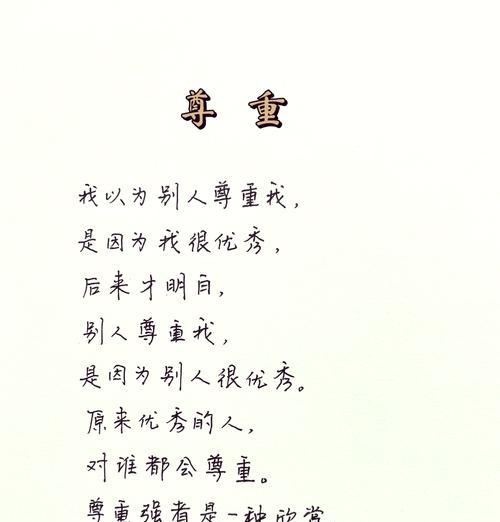 尊 重
我以为别人尊重我，
是因为我很优秀，
后来才明白，
别人尊重我，
是因为别人很优秀。
原来优秀的人，
对谁都会尊重。
尊重强者是一种欣赏